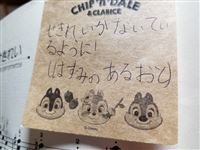 CHIP 'n' DALE
& CLARICE
せきれいがないてい
るように!
(はずみのあるおと)